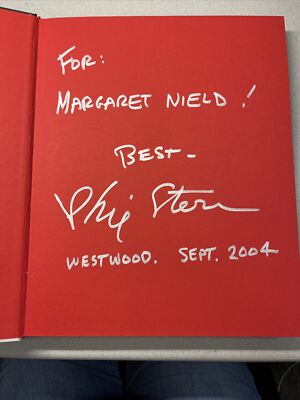 FOR:
MARGARET NIELD!
BEST-
Phil Stern
WESTWOOD. SEPT. 2004